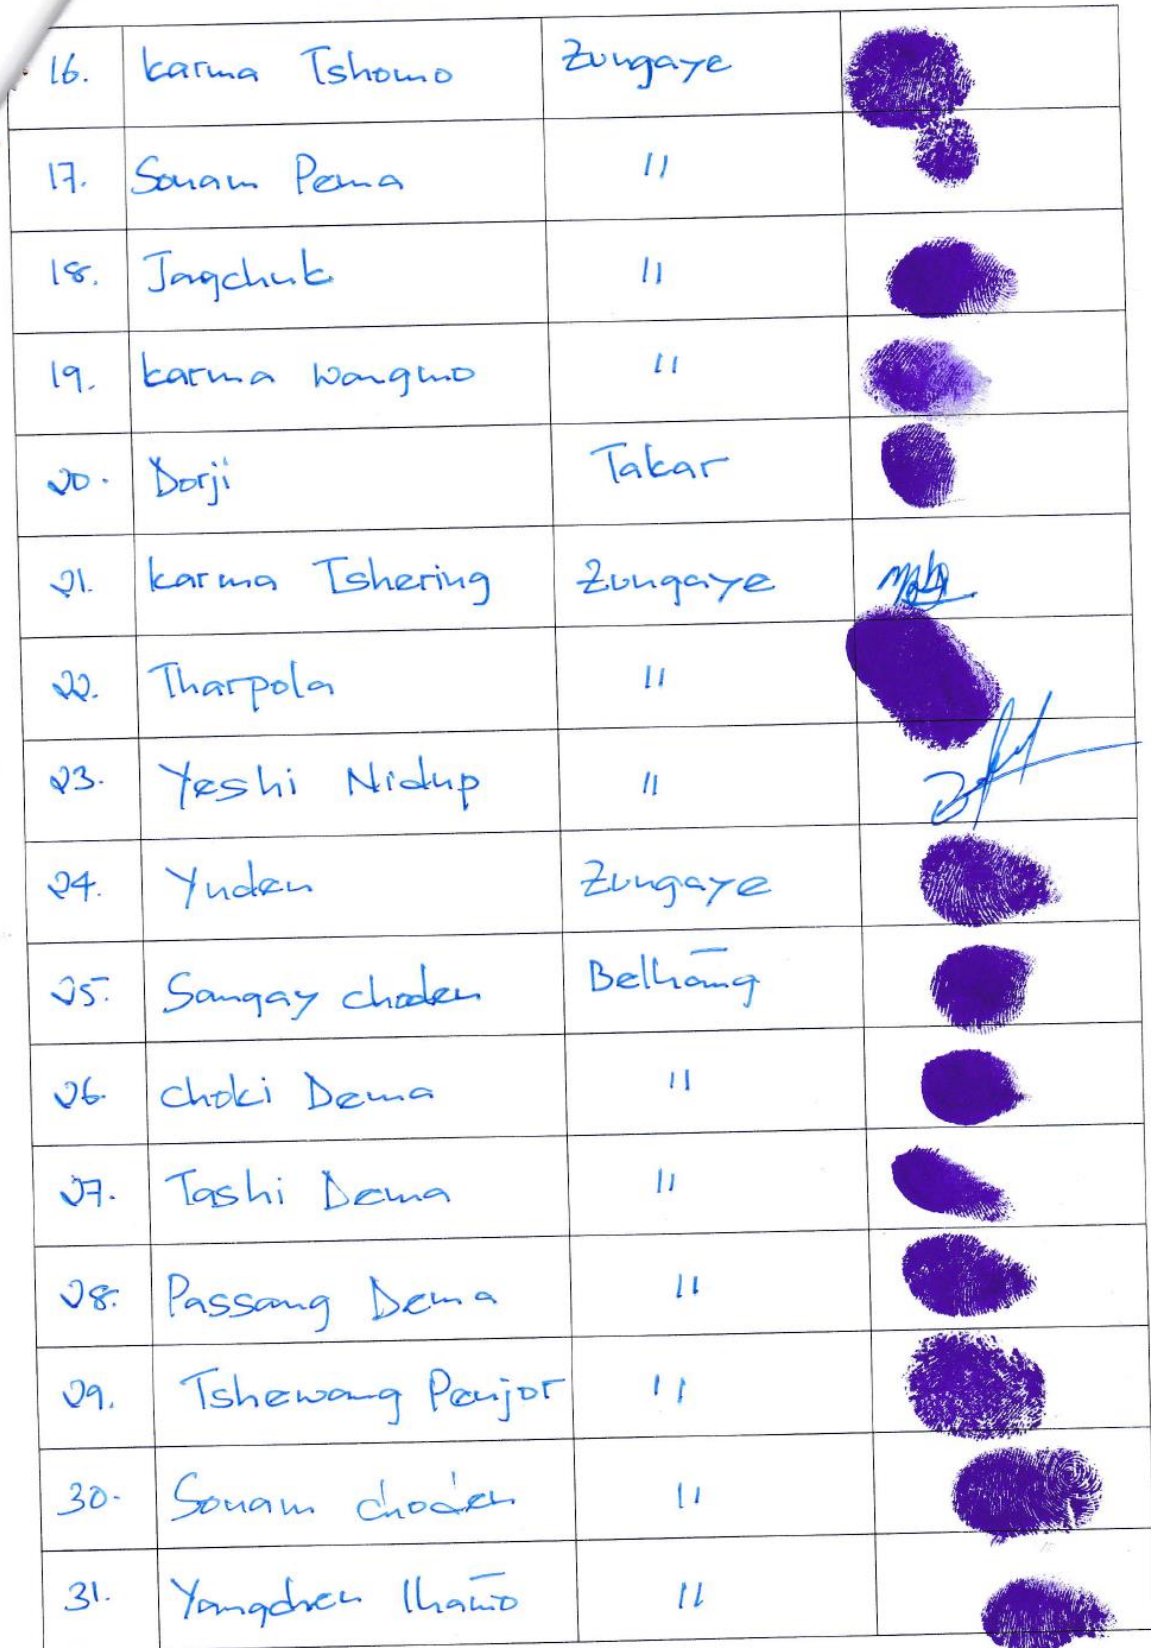 16. Karma Tshomo Zungaye
17. Sonam Pema "
18. Jagchuk "
19. Karma Wangmo "
20. Dorji Takar
21. Karma Tshering Zungaye
22. Tharpola "
23. Yeshi Nidup "
24. Yuden Zungaye
25. Sangay choden Belhang
26. Choki Dema "
27. Tashi Dema "
28. Passang Dema "
29. Tshewang Penjor "
30. Sonam choden "
31. Yangchen lhamo "